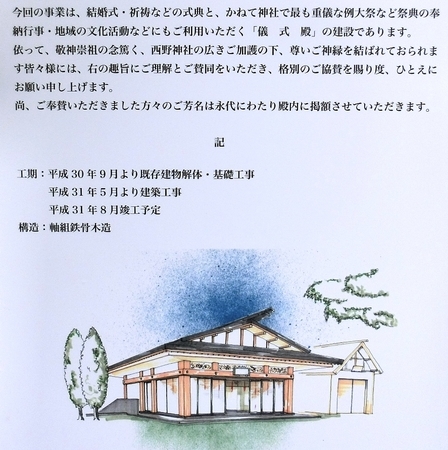 今回の事業は、結婚式・祈祷などの式典と、かねて神社で最も重儀な例大祭など祭典の奉
納行事・地域の文化活動などにもご利用いただく「儀　式　殿」の建設であります。
依って、敬神崇祖の念篤く、西野神社の広きご加護の下、尊いご神縁を結ばれておられま
す皆々様には、右の趣旨にご理解とご賛同をいただき、格別のご協賛を賜り度、ひとえに
お願い申し上げます。
尚、ご奉賛いただきました方々のご芳名は永代にわたり殿内に掲額させていただきます。
記
工期：平成30年9月より既存建物解体・基礎工事
平成31年5月より建築工事
平成31年8月竣工予定
構造：軸組鉄骨木造